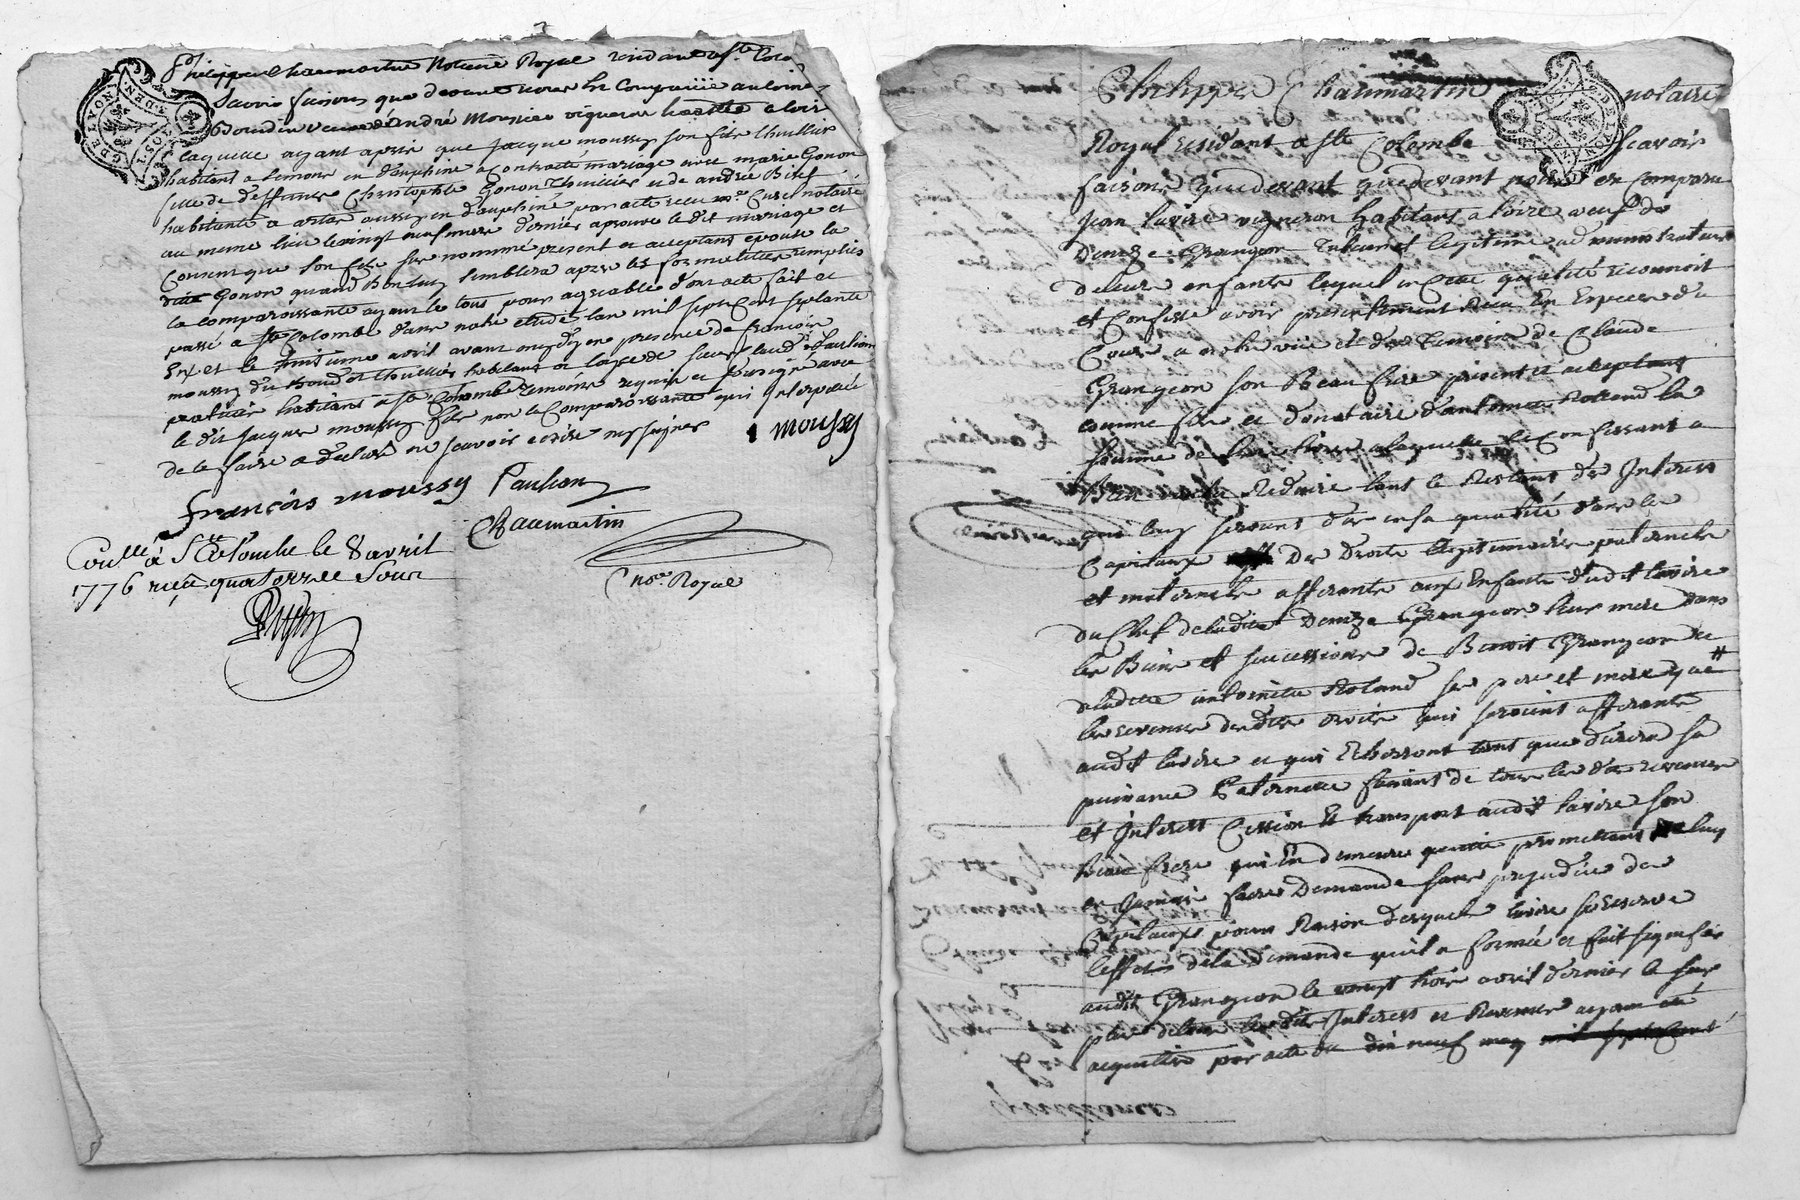 Philippe Chaumartin Notaire Royal residant a Ste Colo
Scavoir faisons que devant nous est Comparüe antoinette
Bourdin veuve d'andré Moussier vigneron habitte a loire
laquelle ayant apris que jacque moussy son fils thuillier
habitant a simons en dauphiné a Contracté mariage avec marie Gonon
fille de deffunt Christophle Gonon thuillier et de andrée
habitante a artas aussy en dauphiné par acte recu me notaire
au meme lieu le vingt neuf mars dernier aprouve le dit mariage et
Consent que son fils sus nommé present et acceptant epouse la
ditte Gonon quand Bon luy semblera apres les formalittes remplies
la comparoissante ayant le tout pour agreable dont acte fait et
passé a Ste Colombe dans notre etude l'an mil sept Cent septante
six et le huitieme avril avant midy en presence de francois
moussy du thuillier habitant a et de sieur paulion
praticien habitant a Ste Colombe temoins requis et soussigné avec
le dit jacques moussy fils non la Comparoissante qui interpelée
de le faire a declaré ne scavoir ecrire ny signer
moussy
françois moussy Paulion
Chaumartin
nore Royal
Conlle à Ste Colombe le 8 avril
1776 reçu quatorze sous
GDE LYON
Philippe Chaumartin notaire
Royal residant a Ste Colombe scavoir
faisons que devant que devant nous est Comparu
jean lavire vigneron habitant a loire veuf de
Denize Grangeon tuteur et legitime administrateur
de leurs enfants lequel en Cette qualité reconnoit
et Confesse avoir presentement Recu En Espece du
Cours a notre vüe et des temoins de Claude
Grangeon son Beau frere present et acceptant
comme fils et donataire d'antoinette Rolland la
somme de livres a laquelle le Confessant a
Bien voulu Reduire tout le Restant des Interest
qui luy seroient dus en sa qualité dans les
Capitaux De Droits legitimaires paternels
et maternels afferants aux Enfants dudit lavire
du Chef de ladite Denize Grangeon leur mere dans
les Biens et successions de Benoit Grangeon et
deladitte antoinette Roland ses pere et mere que
les revenus desdits droits qui seroient afferants
audit lavire et qui Echerront tant que durera sa
puissance Paternelle faisant de tous les dits revenus
et Interest Cession Et transport audit lavire son
Beau frere qui En demeure quitte promettant luy
en jamais faire Demande sans prejudice des
Capitaux pour Raison desquels lavire se reserve
l'effet de la Demande qu'il a formée et fait signifier
audit Grangeon le vingt trois avril dernier le sur
plus de tous lesdits Interest et Revenus ayant été
acquittés par acte du dix neuf may mil sept Cent
quittance